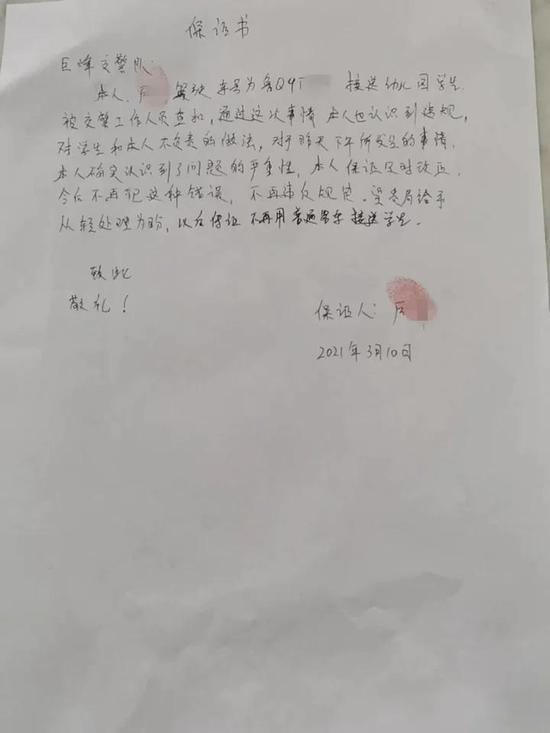 保证书
巨峰交警队:
本人, 驾驶 车号为粤Q9T 接送幼儿园学生
被交警工作人员查扣,通过这次事情 本人也认识到违规,
对学生和本人不负责的做法,对于昨天下午所发生的事情.
本人确实认识到了问题的严重性,本人保证及时改正
今后不再犯这种错误,不再违反规定.望贵局给予
从轻处理为盼,以后保证 不再用普通客车 接送学生.
致此
敬礼!
保证人:
2021年3月10日